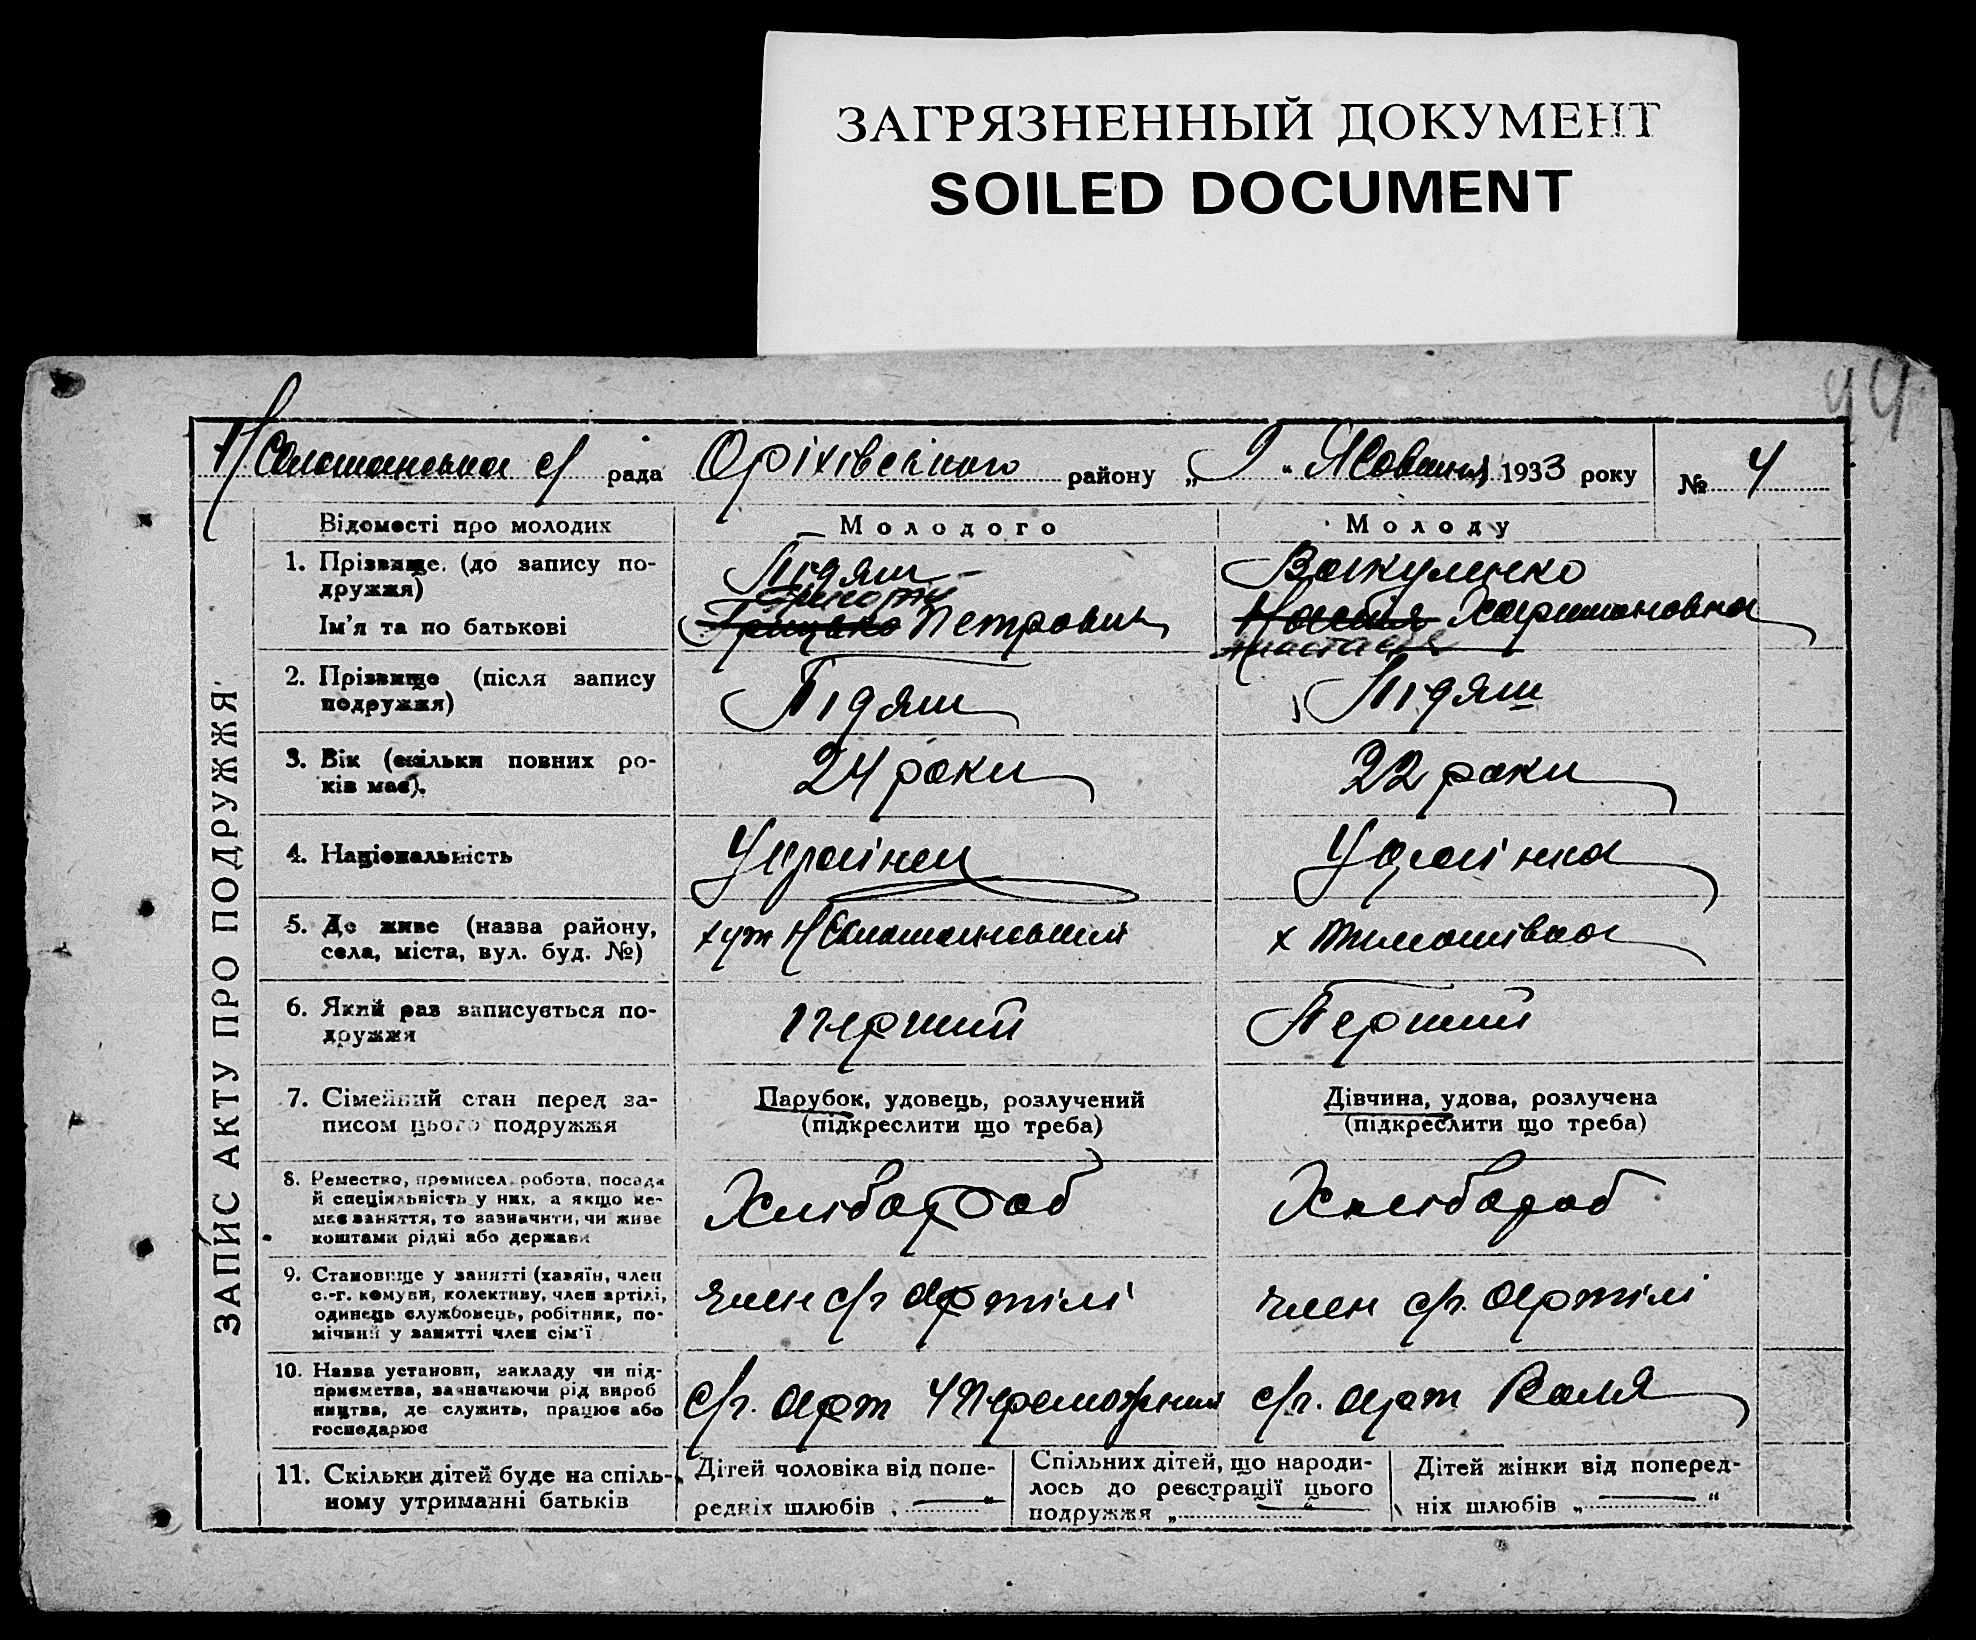 ЗАГРЯЗНЕННЫЙ ДОКУМЕНТ
SOILED DOCUMENT
44
с/ рада Оріхівського району „ 9 “ Жовтня 1933 року № 4
ЗАПИС АКТУ ПРО ПОДРУЖЖЯ
Відомості про молодих Молодого Молоду
1. Прізвище. (до запису по-
дружжя)
Підяш Вакуленко
Ім'я та по батькові
Григорій
Грицько Петрович Настія Харитоновна
Анастасія
2. Прізвище (після запису
подружжя)
Підяш Підяш
3. Вік (скільки повних ро-
ків має).
24 роки 22 роки
4. Національність
Українец Українка
5. Де живе (назва району,
села, міста, вул. буд. №)
хут х Тимошівка
6. Який раз записується по-
дружжя
перший Перший
7. Сімейний стан перед за-
писом цього подружжя
Парубок, удовець, розлучений
(підкреслити що треба)
Дівчина, удова, розлучена
(підкреслити що треба)
8. Ремество, промисел, робота, посада
й спеціяльність у них, а якщо не-
має заняття, то зазначити, чи живе
коштами рідні або держави
Хлібороб Хлібороб
9. Становище у занятті (хазяїн, член
с.-г. комуни, колективу, член артілі,
одинець службовець, робітник, по-
мічний у занятті член сім'ї
член с/г артілі член с/г. артілі
10. Назва установи, закладу чи під-
приємства, зазначаючи рід вироб
ництва, де служить, працює або
господарює
с/г. арт с/г. арт Воля
11. Скільки дітей буде на спіль-
ному утриманні батьків
Дітей чоловіка від попе-
редніх шлюбів „ — “
Спільних дітей, що народи-
лось до реєстрації цього
подружжя „ — “
Дітей жінки від поперед-
ніх шлюбів „ — “